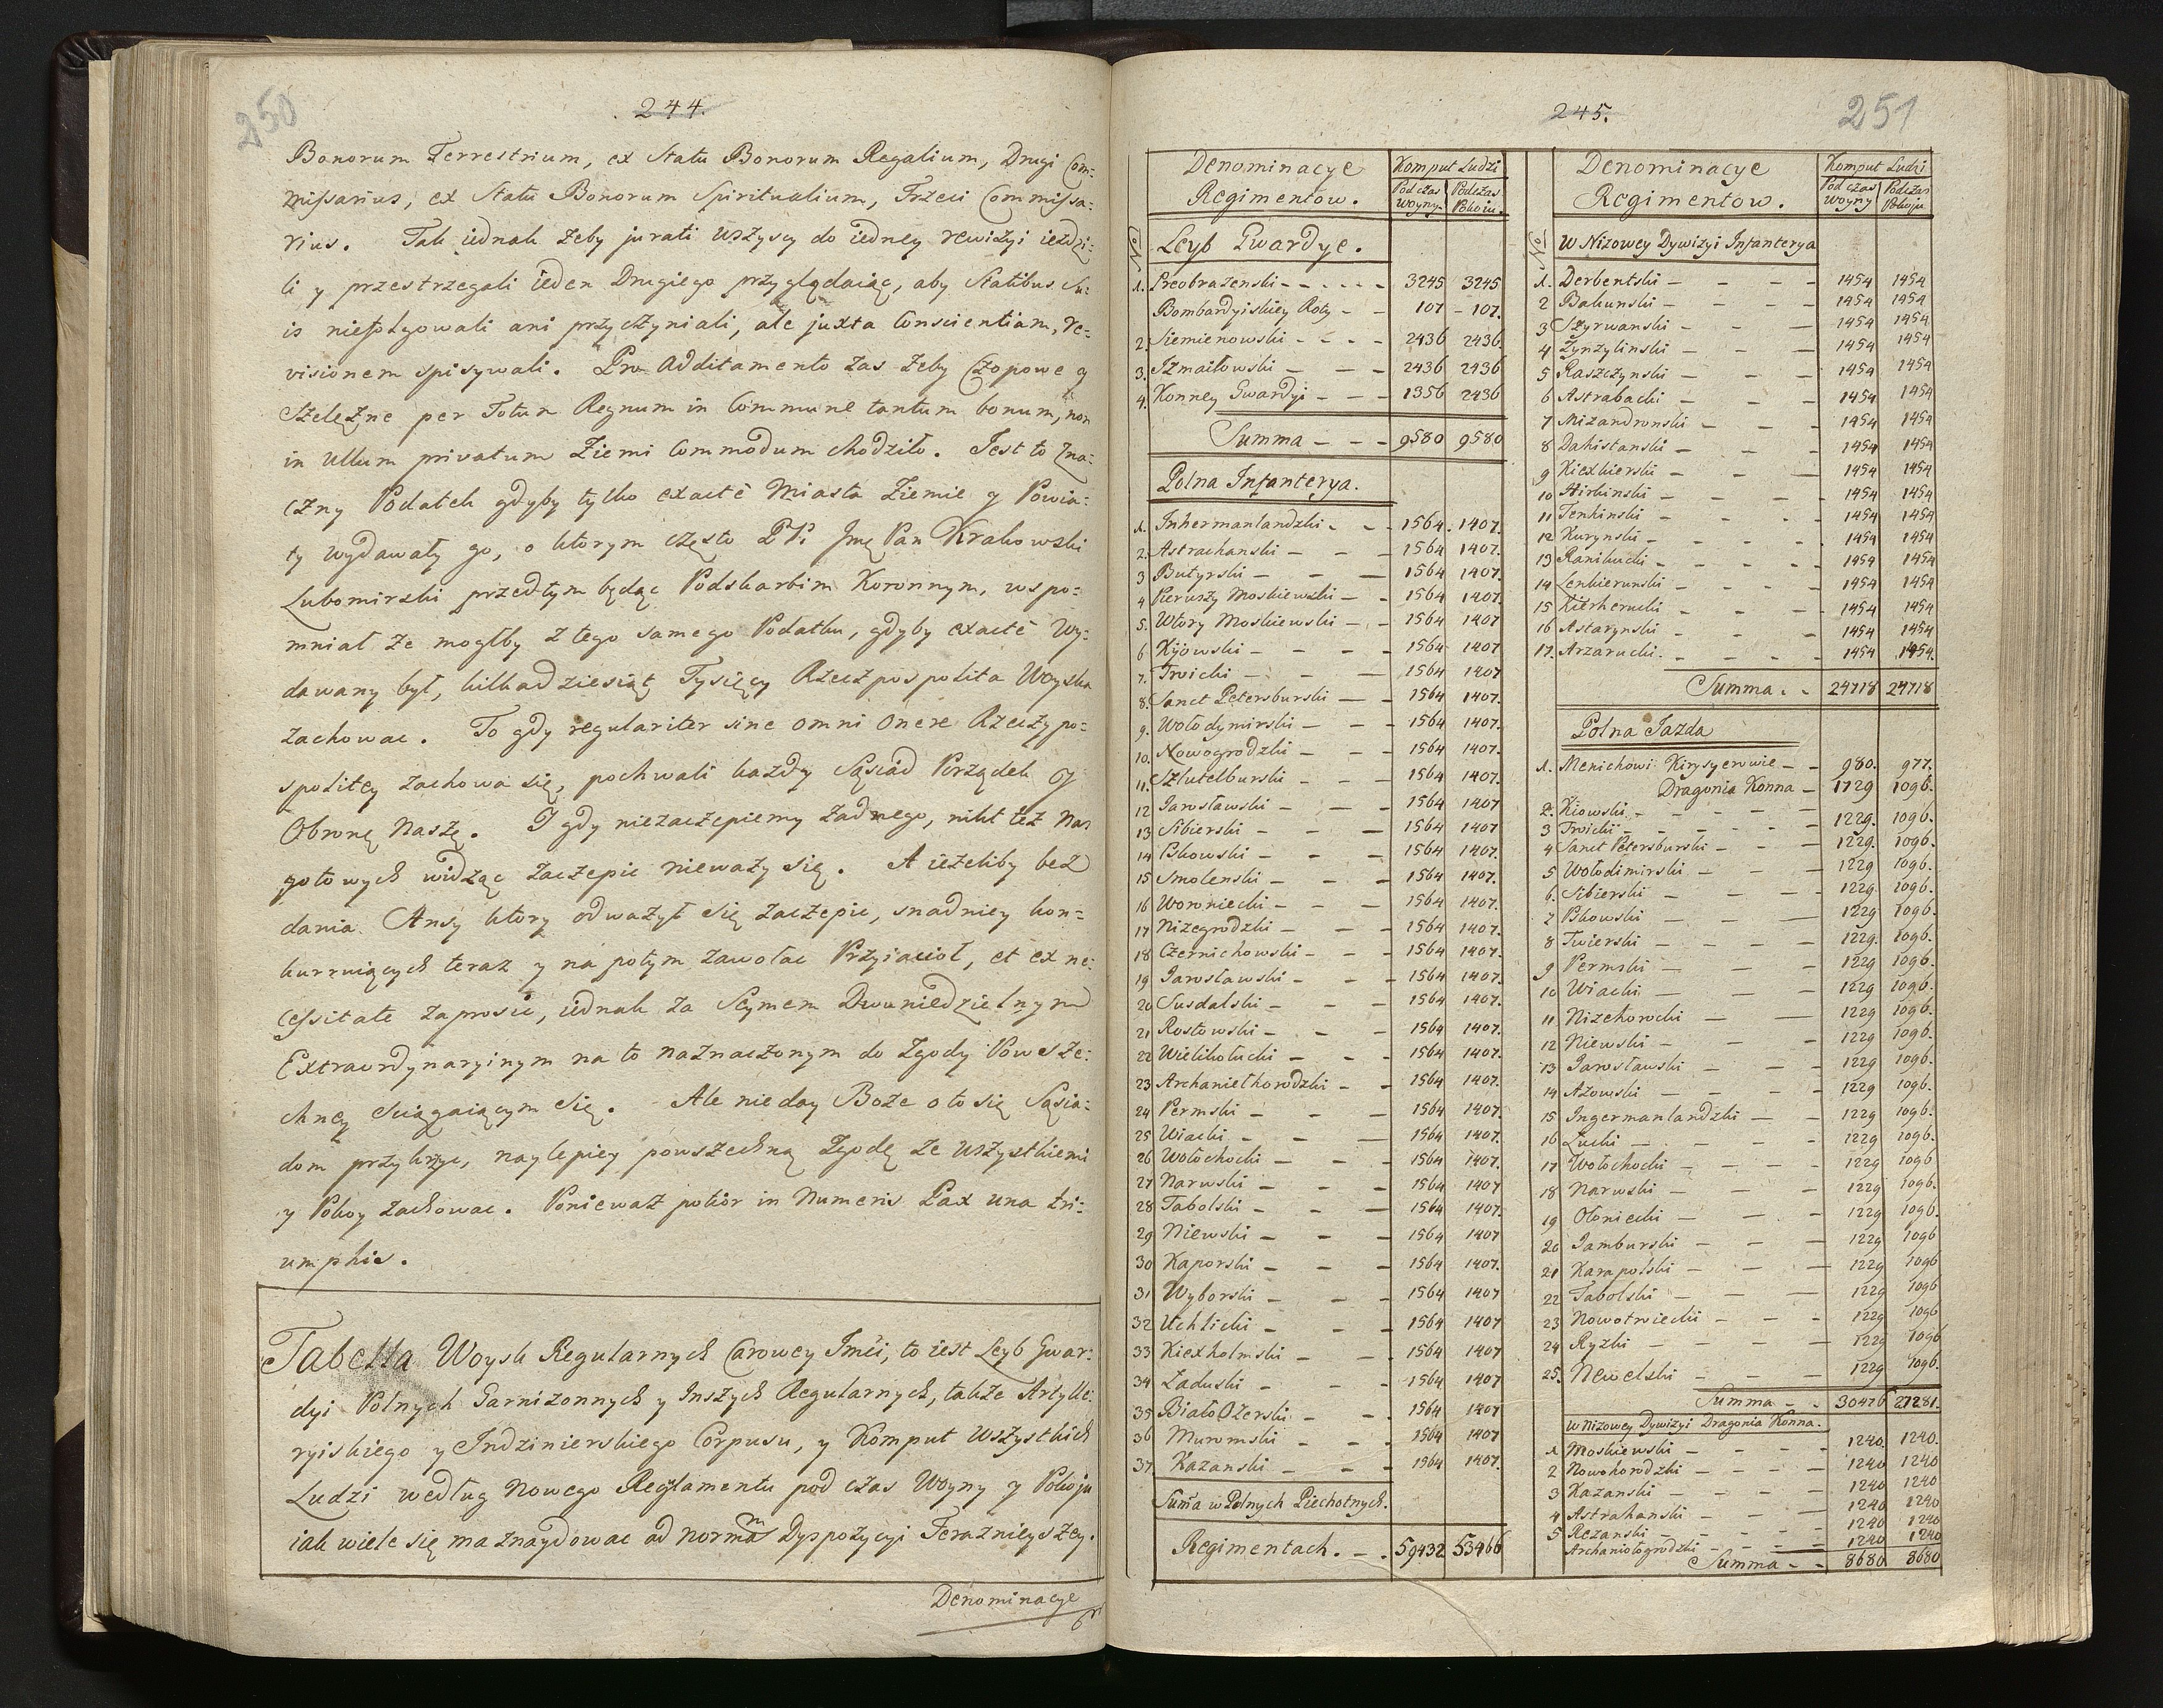 250
244.
Bonorum Terrestrium, ex Statu Bonorum Regalium, Drugi Com:
missarius, ex Statu Bonorum Spiritualium, Trzeci Commissa:
rius. Tak iednak żeby jurati wszyscy do iedney rewizyi ieździ:
li y przestrzegali ieden Drugiego przyglądaiąc, aby Statibus Su:
is niefolgowali ani przyczyniali, ale juxta Conscientiam, re:
visionem spisywali. Pro Additamento zas żeby Czopowe y
Szelężne per Totum Regnum in Commune tantum bonum, non
in Ullum privatum Ziemi Commodum chodziło. Jest to Zna:
czny Podatek gdyby tylko exactè Miasta Ziemie y Powia:
ty wydawały go, o ktorym często Jmę Pan Krakowski
Lubomirski przedtym będąc Podskarbim Koronnym, wspo:
mniał że mogłby z tego samego Podatku, gdyby exactè Wy:
dawany był, kilkadziesiąt Tysięcy Rzeczpospolita Woyska
zachowac. To gdy regulariter sine omni Onere Rzeczypo:
spolitey zachowa się, pochwali każdy Sąsiad Porządek y
Obronę Naszę. I gdy niezaczepiemy żadnego, nikt też Nas
gotowych widząc zaczepic nieważy się. A ieżeliby bez
dania Ansy ktory odważył się zaczepic, snadniey kon:
kurruiących teraz y na potym zawołac Przyiacioł, et ex ne:
cessitate zaprosic, iednak za Seymem Dwuniedzielnym
Extraordynaryinym na to naznaczonym do Zgody Powsze:
chney sciągaiącym się. Ale nie day Boże o to się Sąsia:
dom przykrzyc, naylepiey powszechną Zgodę ze wszystkiemi
y Pokoy zachowac. Ponieważ potior in Numeris Pax una tri:
umphis.
Tabella Woysk Regularnych Carowey Jmći, to iest Leyb Gwar:
dyi Polnych Garnizonnych y Inszych Regularnych, także Artylle:
ryiskiego y Indzinierskiego Corpusu, y Komput wszystkich
Ludzi według Nowego Reglamentu pod czas Woyny y Pokoju
iak wiele się ma znaydowac ad normam Dyspozycyi Teraznieyszey.
Denominacye
245.
251
Denominacye Regimentow.
Komput Ludzi
Podczas Woyny Podczas Pokoiu
No
Leyb Gwardye.
1. Preobrażenski 3245 3245
Bombardyiskiey Roty 107 107.
2. Siemienowski 2436 2436.
3. Izmaiłowski 2436 2436
4. Konney Gwardyi 1356 2436
Summa 9580 9580
Polna Infanterya.
1. Inhermanlandzki 1564. 1407.
2. Astrachanski 1564 1407.
3 Butyrski 1564 1407.
4 Pierwszy Moskiewski 1564 1407.
5. Wtory Moskiewski 1564 1407
6 Kijowski 1564 1407
7. Troicki 1564 1407
8. Sanct Petersburski 1564 1407.
9. Wołodymirski 1564 1407.
10. Nowogrodzki 1564 1407.
11. Szlutelburski 1564 1407.
12 Jarosławski 1564 1407
13 Sibierski 1564 1407
14 Pskowski 1564 1407.
15 Smolenski 1564 1407.
16 Woroniecki 1564 1407.
17 Niżegrodzki 1564 1407.
18 Czernichowski 1564 1407.
19 Jarosławski 1564 1407.
20 Susdalski 1564 1407.
21 Rostowski 1564 1407.
22 Wielikołucki 1564 1407.
23 Archaniełhorodzki 1564 1407.
24 Permski 1564 1407.
25 Wiacki 1564 1407.
26 Wołochocki 1564 1407.
27 Narwski 1564 1407
28 Tabolski 1564 1407.
29 Niewski 1564 1407
30 Kaporski 1564 1407.
31 Wyborski 1564 1407
32 Uchlicki 1564 1407
33 Kiexholmski 1564 1407
34 Ładuski 1564 1407
35 BiałoOzerski 1564 1407
36 Muromski 1564 1407
37. Kazanski 1564 1407.
Suma w Polnych Piechotnych.
Regimentach. 59432 53466
Denominacye Regimentow.
Komput Ludzi
Podczas Woyny Podczas Pokoju
No
W Nizowey Dywizyi Infanterya
1. Derbentski 1454 1454
2 Bakunski 1454 1454
3 Szyrwanski 1454 1454
4 Zynzylinski 1454 1454
5 Raszczynski 1454 1454
6 Astrabacki 1454 1454
7 Mizandronski 1454 1454
8 Dahistanski 1454 1454
9 Kiexkierski 1454 1454
10 Hirkinski 1454 1454
11 Tenkinski 1454 1454
12 Kurynski 1454 1454
13 Ranikucki 1454 1454
14 Lenkierunski 1454 1454
15 Kierherucki 1454 1454
16 Astarynski 1454 1454
17. Arzarucki 1454 1454.
Summa 24718 24718
Polna Jazda
1. Menichowi Kirysyerowie 980. 977.
Dragonia Konna 1729 1096.
2. Kiowski 1229. 1096.
3 Troicki
4 Sanct Petersburski 1229. 1096.
5 Wołodimirski 1229 1096.
6. Sibierski 1229 1096.
7 Pskowski 1229 1096.
8 Twierski 1229. 1096.
9 Permski 1229 1096.
10 Wiacki 1229 1096.
11 Niżehorocki 1229 1096.
12 Niewski 1229 1096.
13 Jarosławski 1229 1096.
14 Azowski 1229 1096.
15 Ingermanlandzki 1229 1096.
16 Łucki 1229 1096.
17 Wołochocki 1229 1096
18 Narwski 1229 1096.
19 Ołoniecki 1229 1096.
20 Jamburski 1229 1096
21 Karapolski 1229 1096
22 Tabolski 1229 1096
23 Nowotroiecki 1229 1096
24 Ryzki 1229 1096
25. Newelski 1229 1096.
Summa 30476 27281.
W Nizowey Dywizyi Dragonia Konna.
1 Moskiewski 1240. 1240.
2 Nowohorodzki 1240 1240
3 Kazanski 1240 1240
4 Astrahanski 1240 1240
5 Rezanski 1240 1240
Archaniołogrodzki 1240 1240
Summa 8680 8680